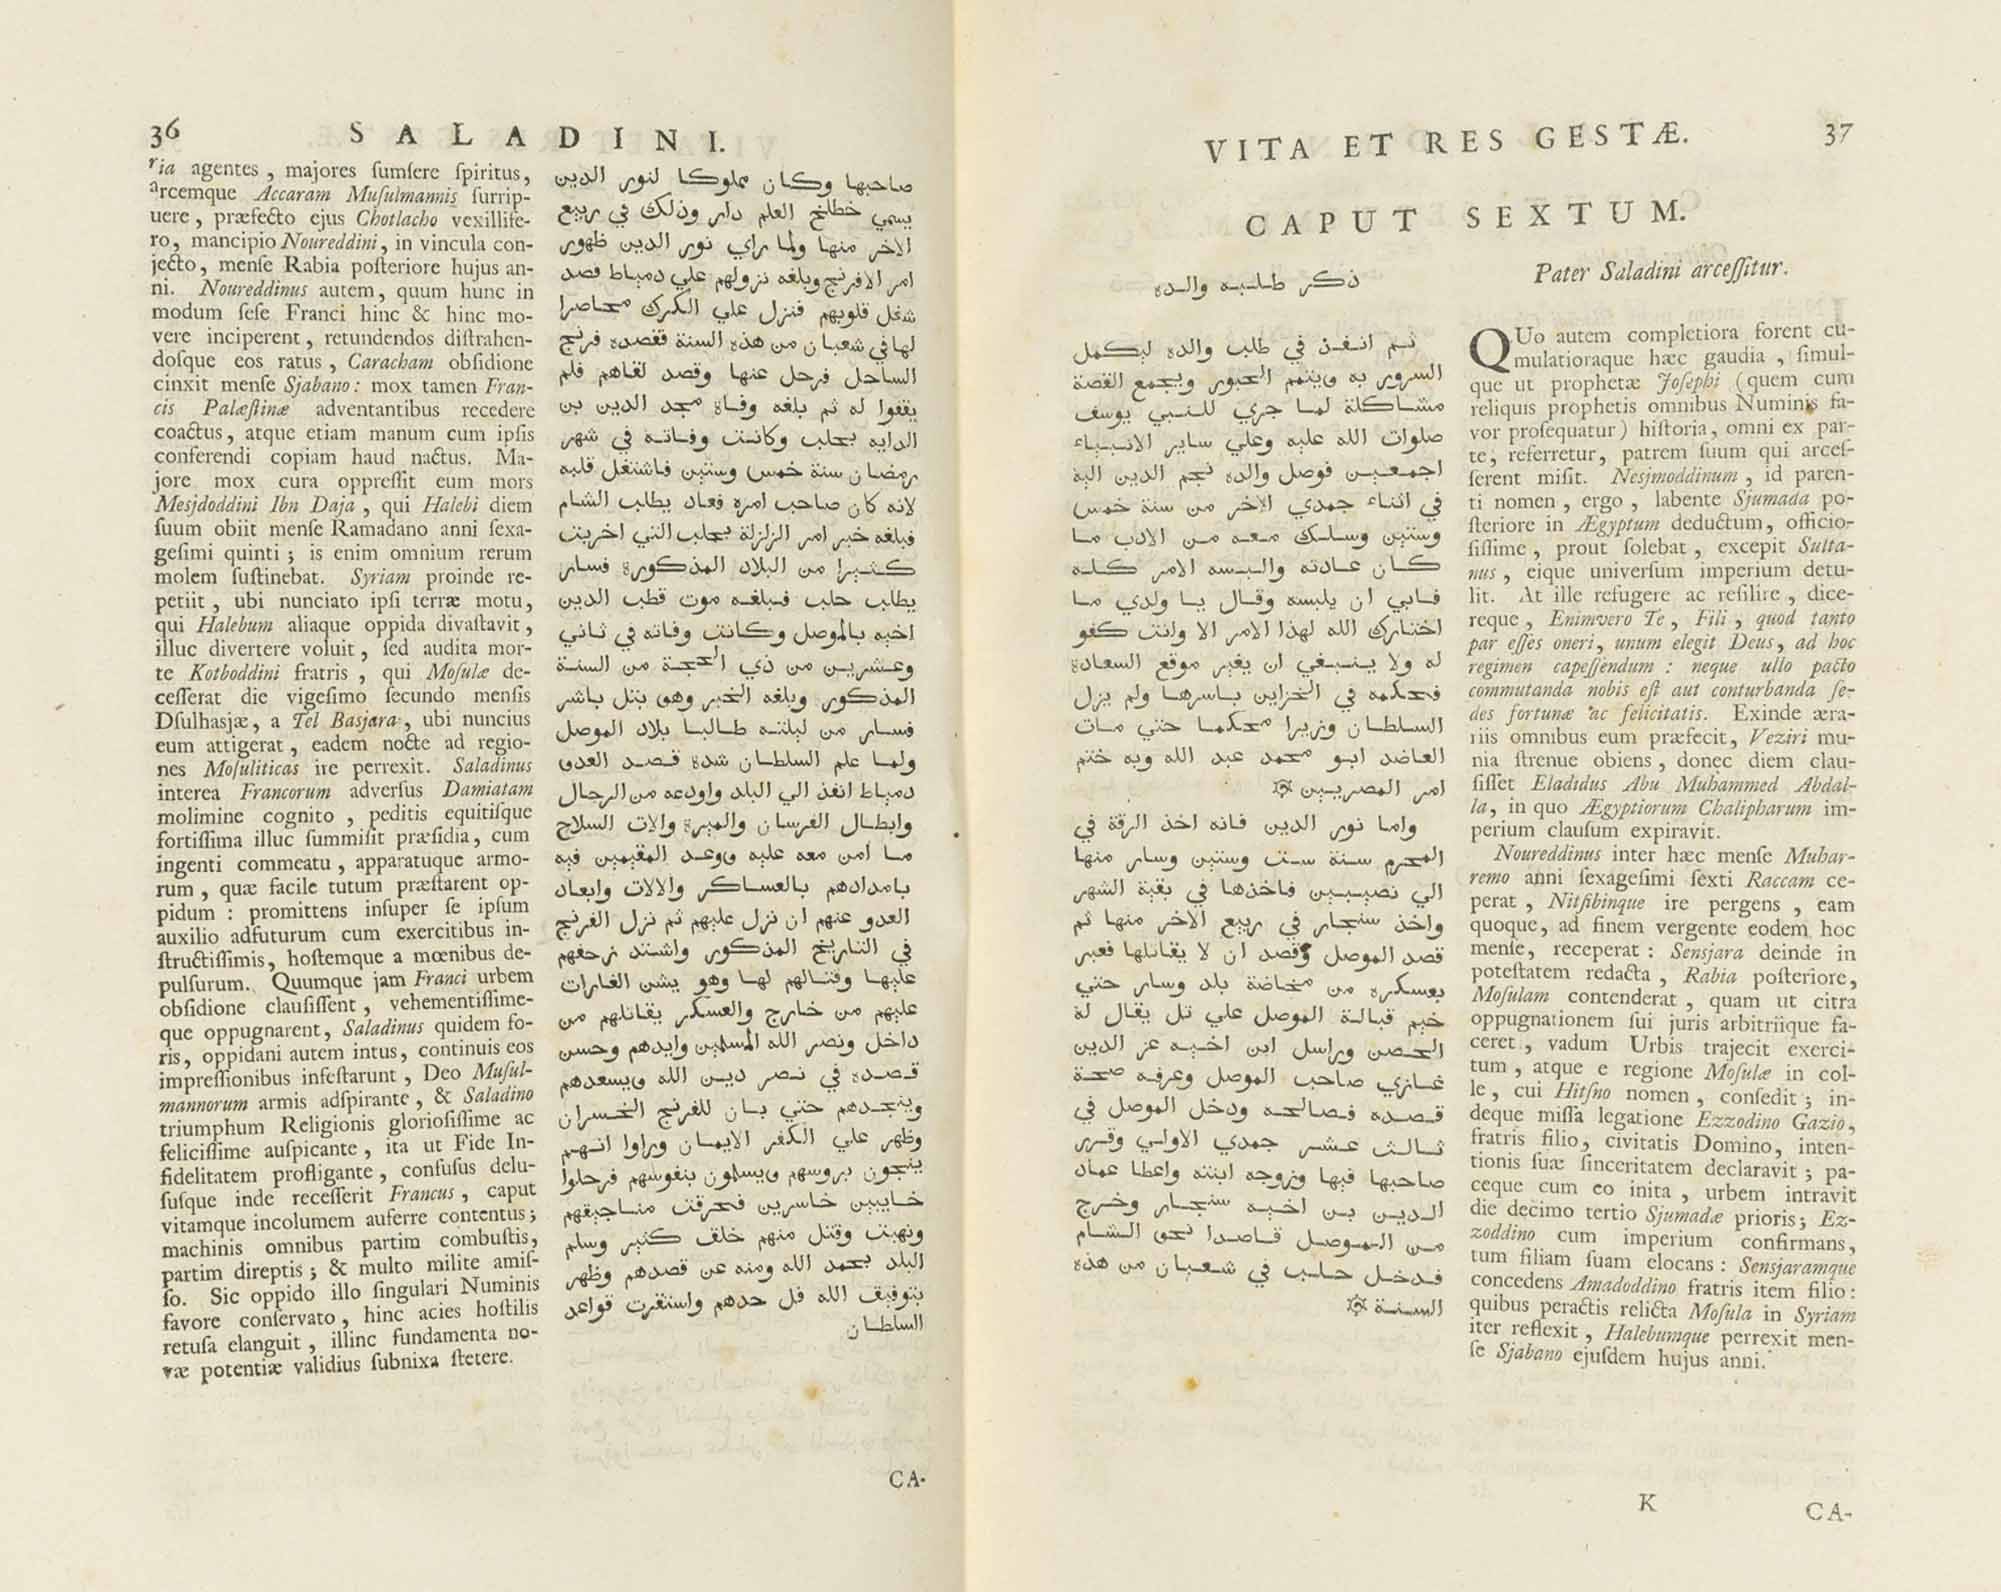 36 SALADINI.
ria agentes, majores ſumſere ſpiritus,
arcemque Accaram Muſulmannis ſurrip-
uere, præfecto ejus Chotlacho vexillife-
ro, mancipio Noureddini, in vincula con-
jecto, menſe Rabia poſteriore hujus an-
ni. Noureddinus autem, quum hunc in
modum ſeſe Franci hinc & hinc mo-
vere inciperent, retundendos diſtrahen-
doſque eos ratus, Caracham obſidione
cinxit menſe Sjabano: mox tamen Fran-
cis Palæſtinæ adventantibus recedere
coactus, atque etiam manum cum ipſis
conferendi copiam haud nactus. Ma-
jore mox cura oppreſſit eum mors
Mesjdoddini Ibn Daja, qui Halebi diem
ſuum obiit menſe Ramadano anni ſexa-
geſimi quinti; is enim omnium rerum
molem ſuſtinebat. Syriam proinde re-
petiit, ubi nunciato ipſi terræ motu,
qui Halebum aliaque oppida divaſtavit,
illuc divertere voluit, ſed audita mor-
te Kotboddini fratris, qui Moſulæ de-
ceſſerat die vigeſimo ſecundo menſis
Dſulhasjæ, a Tel Basjara, ubi nuncius
eum attigerat, eadem nocte ad regio-
nes Moſuliticas ire perrexit. Saladinus
interea Francorum adverſus Damiatam
molimine cognito, peditis equitiſque
fortiſſima illuc ſummiſit præſidia, cum
ingenti commeatu, apparatuque armo-
rum, quæ facile tutum præſtarent op-
pidum: promittens inſuper ſe ipſum
auxilio adfuturum cum exercitibus in-
ſtructiſſimis, hoſtemque a mœnibus de-
pulſurum. Quumque jam Franci urbem
obſidione clauſiſſent, vehementiſſime-
que oppugnarent, Saladinus quidem fo-
ris, oppidani autem intus, continuis eos
impreſſionibus infeſtarunt, Deo Muſul-
mannorum armis adſpirante, & Saladino
triumphum Religionis glorioſiſſime ac
feliciſſime auſpicante, ita ut Fide In-
fidelitatem profligante, confuſus delu-
ſuſque inde receſſerit Francus, caput
vitamque incolumem auferre contentus;
machinis omnibus partim combuſtis,
partim direptis; & multo milite amiſ-
ſo. Sic oppido illo ſingulari Numinis
favore conſervato, hinc acies hoſtilis
retuſa elanguit, illinc fundamenta no-
væ potentiæ validius ſubnixa ſtetere.
صاحبها وكان مملوكا لنور الدين
يسمي خطلخ العلم دار وذلك في ربيع
الاخر منها ولما راي نور الدين ظهور
امر الافرنج وبلغه نزولهم علي دمياط قصد
شغل قلوبهم فنزل علي الكرك محاصرا
لها في شعبان من هذه السنة فقصده فرنج
الساحل فرحل عنها وقصد لقاهم فلم
يقفوا له ثم بلغه وفاة مجد الدين بن
الدايه بحلب وكانت وفاته في شهر
رمضان سنة خمس وستين فاشتغل قلبه
لانه كان صاحب امره فعاد يطلب الشام
فبلغه خبر امر الزلزلة بحلب التي اخربت
كثيرا من البلاد المذكورة فسار
يطلب حلب فبلغه موت قطب الدين
اخيه بالموصل وكانت وفاته في ثاني
وعشرين من ذي الحجة من السنة
المذكور وبلغه الخبر وهو بتل باشر
فسار من ليلته طالبا بلاد الموصل
ولما علم السلطان شدة قصد العدو
دمياط انفذ الي البلد واودعه من الرجال
وابطال الفرسان والميرة والات السلاح
ما امن معه عليه ووعد المقيمين فيه
بامدادهم بالعساكر والالات وابعاد
العدو عنهم ان نزل عليهم ثم نزل الفرنج
في التاريخ المذكور واشتد زحفهم
عليها وقتالهم لها وهو يشن الغارات
عليهم من خارج والعسكر يقاتلهم من
داخل ونصر الله المسلمين وايدهم وحسن
قصده في نصر دين الله ويسعدهم
وينجدهم حتي بان للفرنج الخسران
وظهر علي الكفر الايمان وراوا انهم
ينجون بروسهم ويسلمون بنفوسهم فرحلوا
خايبين خاسرين فحرقت مناجيقهم
ونهبت وقتل منهم خلق كثير وسلم
البلد بحمد الله ومنه عن قصدهم وظهر
بتوفيق الله فل حدهم واستقرت قواعد
السلطان
CA-
VITA ET RES GESTÆ. 37
CAPUT SEXTUM.
ذكر طلبه والده
ثم انفذ في طلب والده ليكمل
السرور به ويتمم الحبور ويجمع القصة
مشاكلة لما جري للنبي يوسف
صلوات الله عليه وعلي ساير الانبياء
اجمعين فوصل والده نجم الدين اليه
في اثناء جمدي الاخر من سنة خمس
وستين وسلك معه من الادب ما
كان عادته والبسه الامر كله
فابي ان يلبسه وقال يا ولدي ما
اختارك الله لهذا الامر الا وانت كفو
له ولا ينبغي ان يغير موقع السعادة
فحكمه في الخزاين باسرها ولم يزل
السلطان وزيرا محكما حتي مات
العاضد ابو محمد عبد الله وبه ختم
امر المصريين ۞
واما نور الدين فانه اخذ الرقة في
المحرم سنة ست وستين وسار منها
الي نصيبين فاخذها في بقية الشهر
واخذ سنجار في ربيع الاخر منها ثم
قصد الموصل وقصد ان لا يقاتلها فعبر
بعسكره من مخاضة بلد وسار حتي
خيم قبالة الموصل علي تل يقال له
الحصن وراسل ابن اخيه عز الدين
غازي صاحب الموصل وعرفه صحة
قصده فصالحه ودخل الموصل في
ثالث عشر جمدي الاولي وقرر
صاحبها فيها وزوجه ابنته واعطا عماد
الدين بن اخيه سنجار وخرج
من الموصل قاصدا نحو الشام
فدخل حلب في شعبان من هذه
السنة ۞
Pater Saladini arceſſitur.
QUo autem completiora forent cu-
mulatioraque hæc gaudia, ſimul-
que ut prophetæ Joſephi (quem cum
reliquis prophetis omnibus Numinis fa-
vor proſequatur) hiſtoria, omni ex par-
te, referretur, patrem ſuum qui arceſ-
ſerent miſit. Nesjmoddinum, id paren-
ti nomen, ergo, labente Sjumada po-
ſteriore in Ægyptum deductum, officio-
ſiſſime, prout ſolebat, excepit Sulta-
nus, eique univerſum imperium detu-
lit. At ille refugere ac reſilire, dice-
reque, Enimvero Te, Fili, quod tanto
par eſſes oneri, unum elegit Deus, ad hoc
regimen capeſſendum: neque ullo pacto
commutanda nobis eſt aut conturbanda ſe-
des fortunæ ac felicitatis. Exinde æra-
riis omnibus eum præfecit, Veziri mu-
nia ſtrenue obiens, donec diem clau-
ſiſſet Eladidus Abu Muhammed Abdal-
la, in quo Ægyptiorum Chalipharum im-
perium clauſum expiravit.
Noureddinus inter hæc menſe Muhar-
remo anni ſexageſimi ſexti Raccam ce-
perat, Nitſibinque ire pergens, eam
quoque, ad finem vergente eodem hoc
menſe, receperat: Sensjara deinde in
poteſtatem redacta, Rabia poſteriore,
Moſulam contenderat, quam ut citra
oppugnationem ſui juris arbitriique fa-
ceret, vadum Urbis trajecit exerci-
tum, atque e regione Moſulæ in col-
le, cui Hitſno nomen, conſedit; in-
deque miſſa legatione Ezzodino Gazio,
fratris filio, civitatis Domino, inten-
tionis ſuæ ſinceritatem declaravit; pa-
ceque cum eo inita, urbem intravit
die decimo tertio Sjumadæ prioris; Ez-
zoddino cum imperium confirmans,
tum filiam ſuam elocans: Sensjaramque
concedens Amadoddino fratris item filio:
quibus peractis relicta Moſula in Syriam
iter reflexit, Halebumque perrexit men-
ſe Sjabano ejuſdem hujus anni.
K CA-